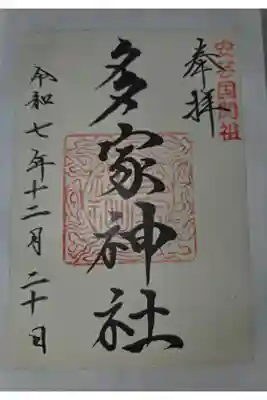 安芸国開祖
奉拝
多家神社
令和七年十二月二十日